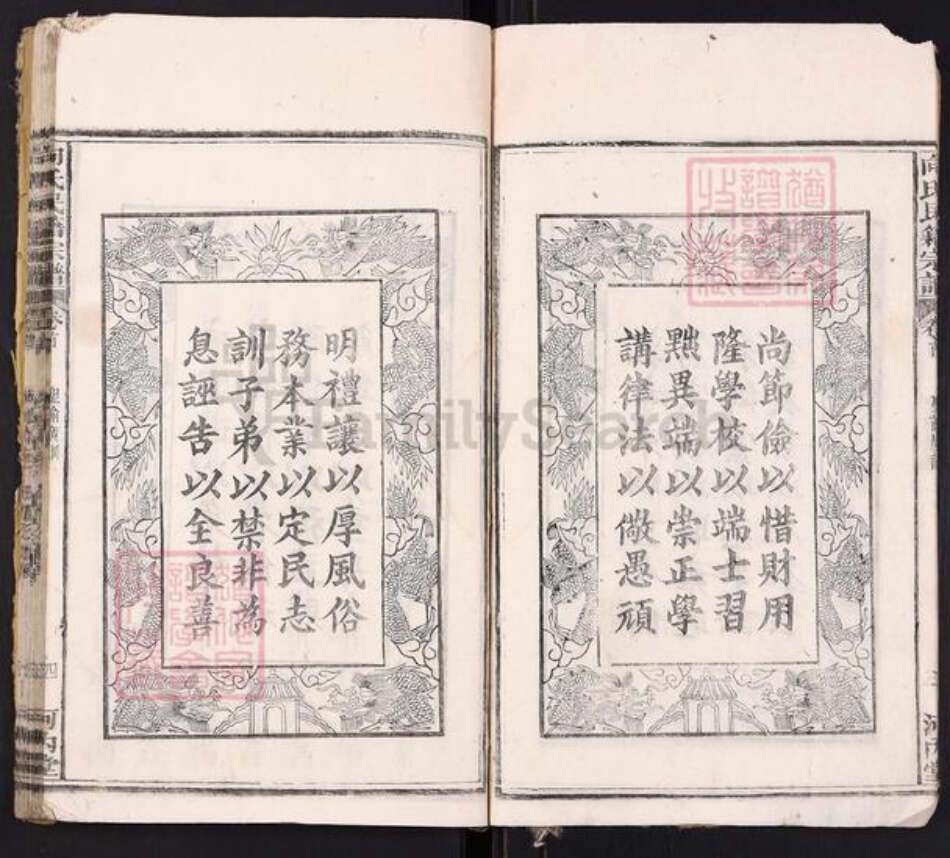 尚節儉以惜財用
隆學校以端士習
黜異端以崇正學
講律法以儆愚頑
明禮讓以厚風俗
務本業以定民志
訓子弟以禁非為
息誣告以全良善
河內堂
FamilySearch